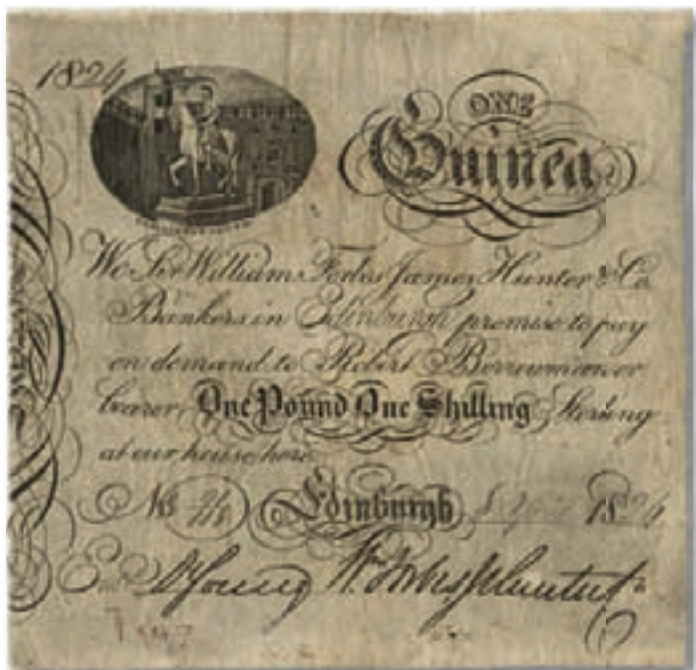 1824
ONE
Guinea
We Sir William Forbes James Hunter & Co
Bankers in Edinburgh promise to pay
on demand to Robert Borrowman or
bearer One Pound One Shilling Sterling
at our house here
No Edinburgh 1824
Young Wm Forbes J Hunter & Co